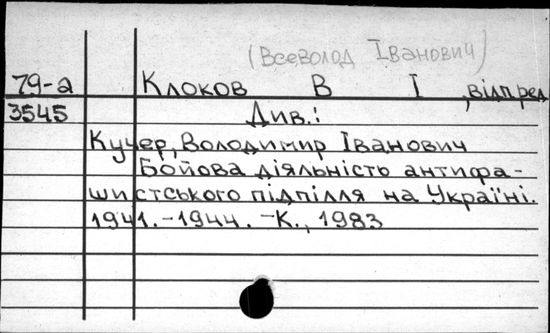 (Всеволод Іванович)
79-а Клоков В І , відп ред
3545 Див.:
Кучер, Володимир Іванович
Бойова діяльність антифа-
шистського підпілля на Україні.
1941.-1944. -К., 1983